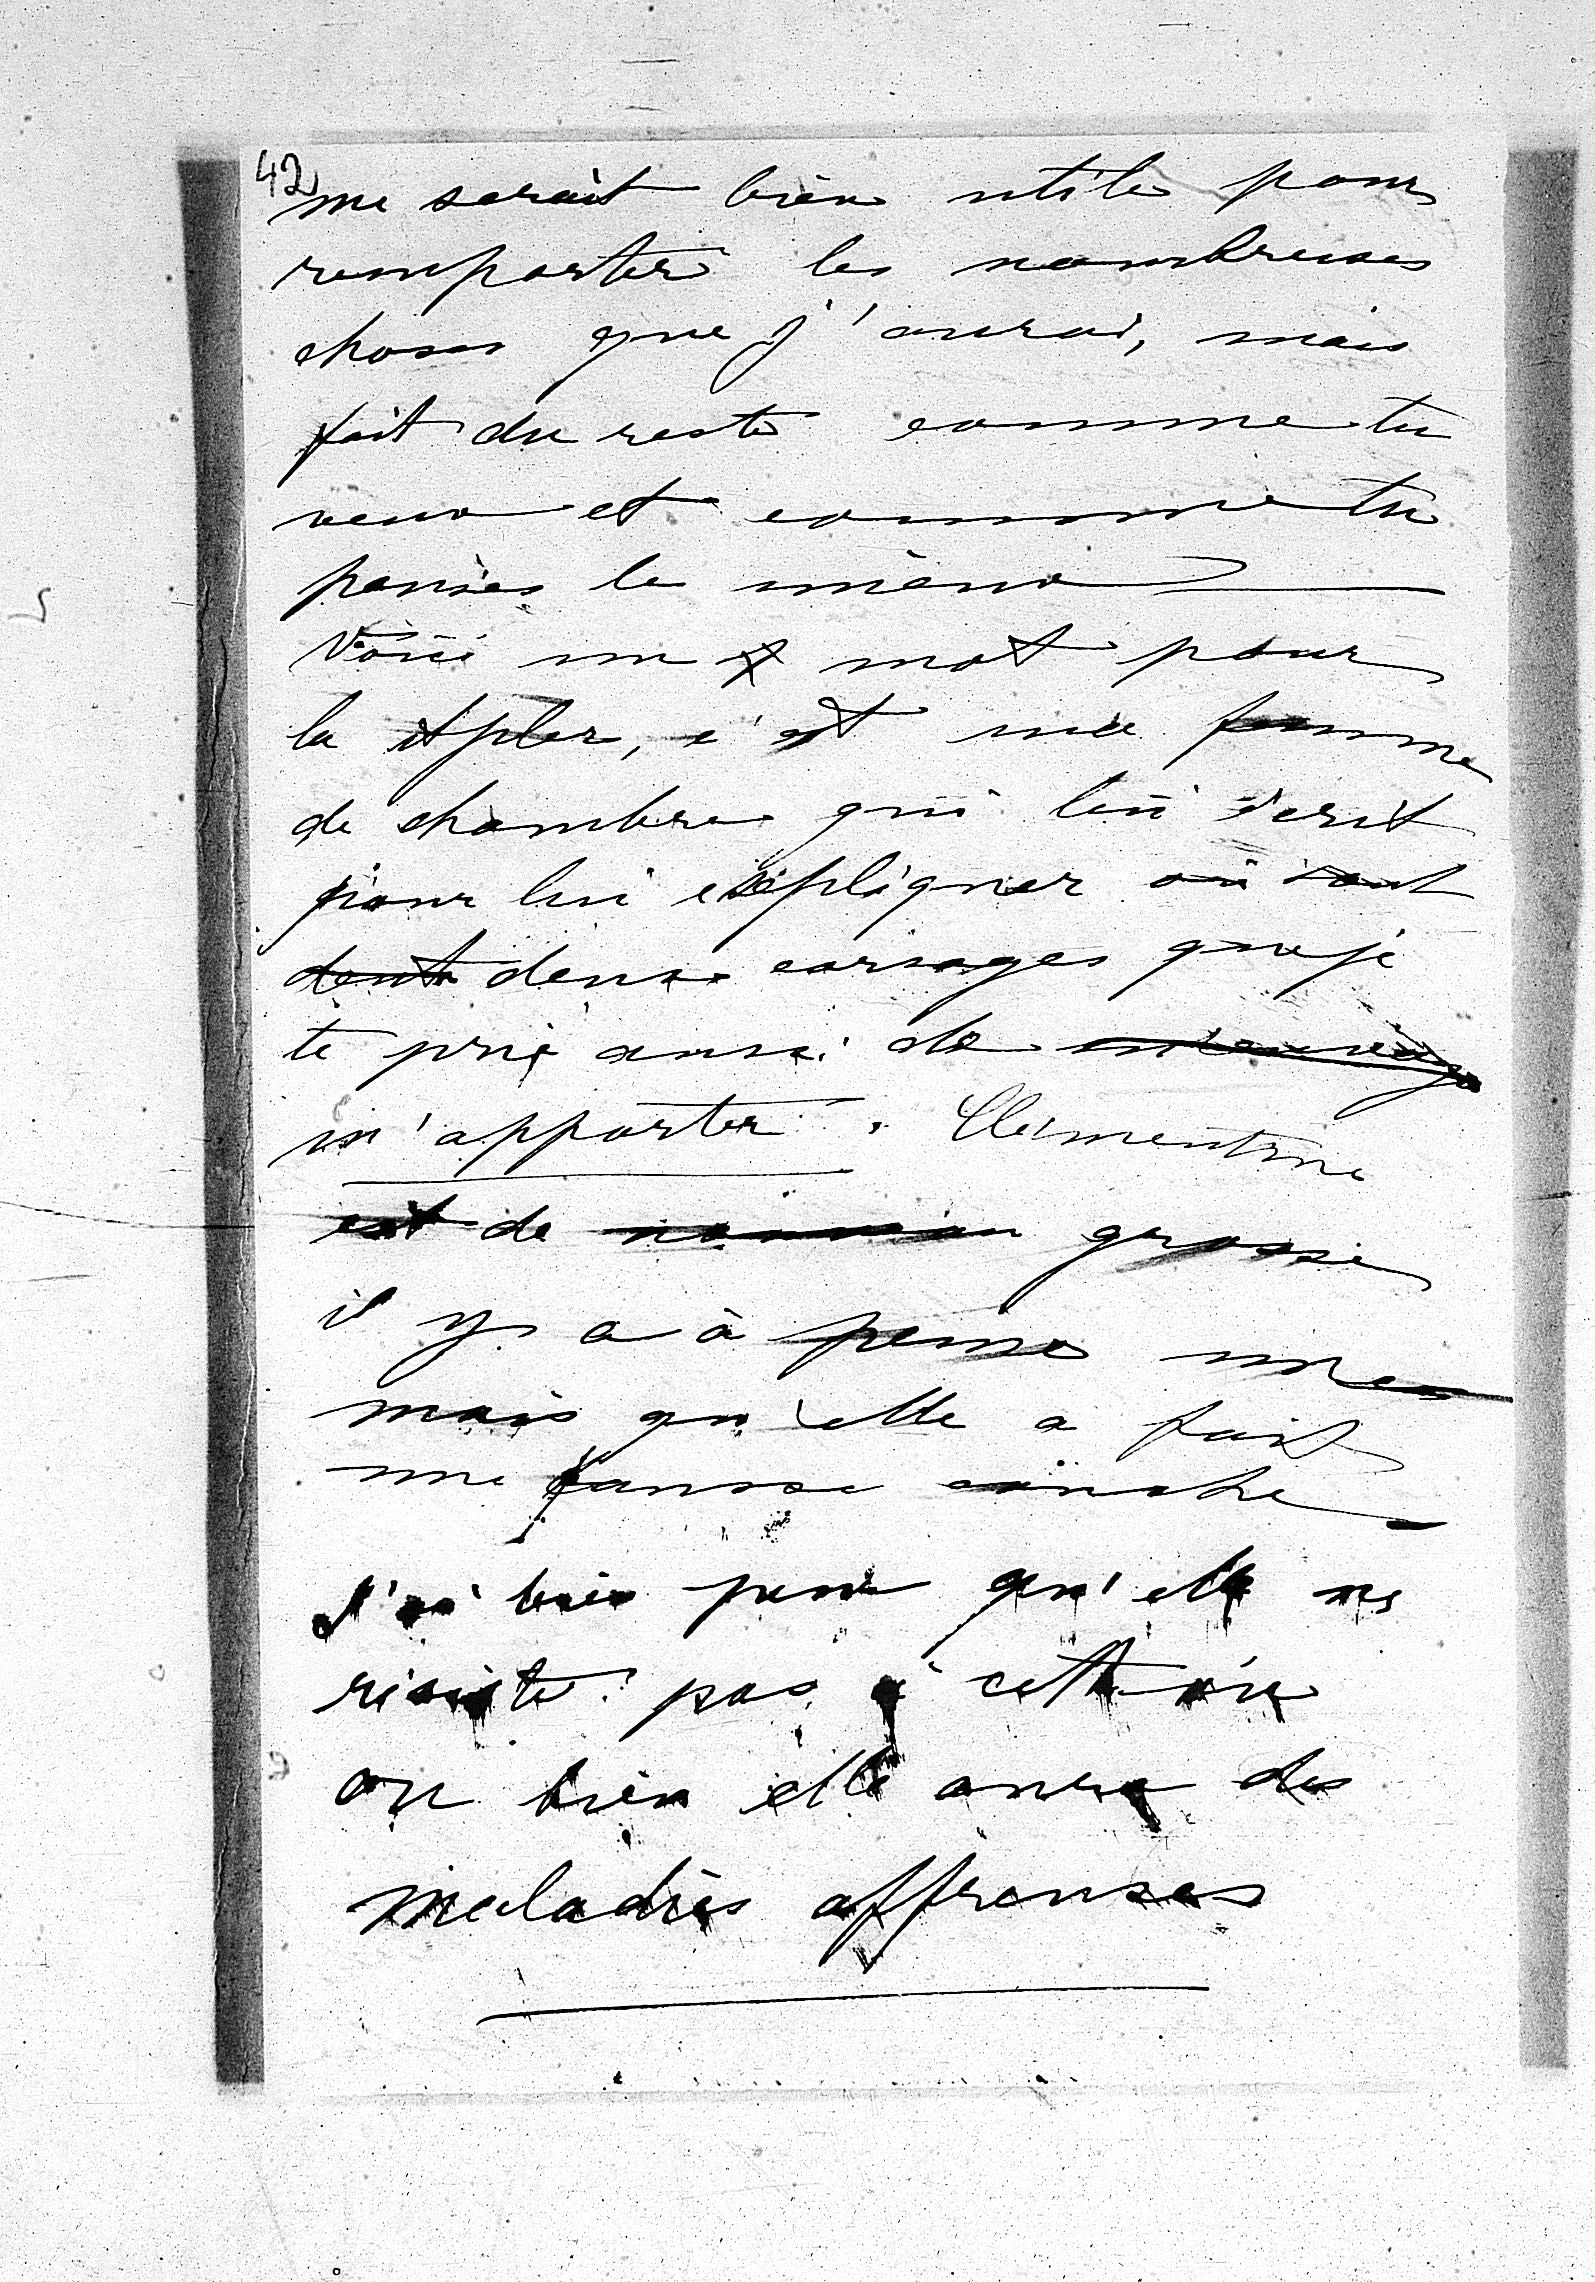 42
me serait bien utile pour
remporter les nombreuses
choses que j'aurai, mais
fait du reste comme tu
veux et comme tu
penses le mieux
Voici un mot pour
la Apler, c'est ma femme
de chambre qui lui écrit
pour lui expliquer où sont
deux corsages que je
te prie aussi de
m'apporter. Clémentine
est de nouveau grosse
il y a à peine un
mois qu'elle a fait
une fausse couche
J'ai bien peur qu'elle ne
résiste pas à cette vie
ou bien elle aura des
maladies affreuses